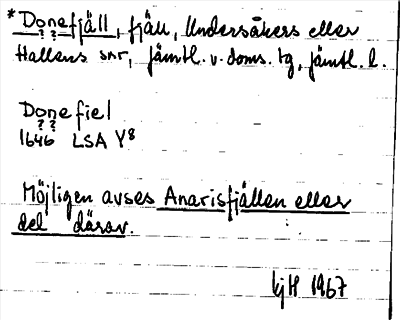 *Donefjäll, fjäll, Undersåkers eller
? ?
Hallens snr, Jämtl. v. doms. tg, Jämtl. l.
Donefiel
? ?
1646 LSA Y8
Möjligen avses Anarisfjällen eller
del därav.
KjH 1967